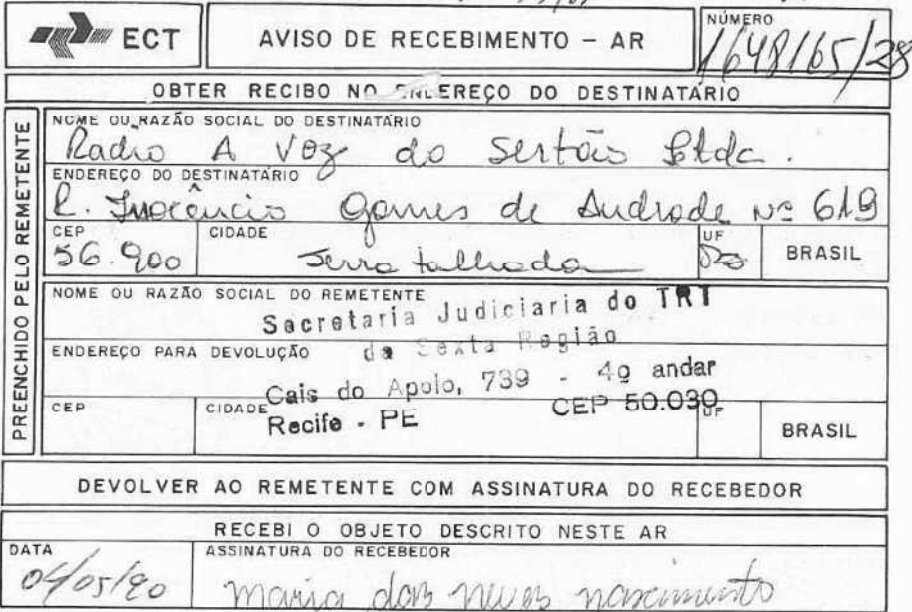 ECT
AVISO DE RECEBIMENTO - AR
NÚMERO
1648165/28
OBTER RECIBO NO ENDEREÇO DO DESTINATÁRIO
PREENCHIDO PELO REMETENTE
NOME OU RAZÃO SOCIAL DO DESTINATÁRIO
Radio A Voz do Sertão Ltda.
ENDEREÇO DO DESTINATÁRIO
R. Inocêncio Gomes de Andrade nº 619
CEP CIDADE UF
56.900 Serra talhada BRASIL
NOME OU RAZÃO SOCIAL DO REMETENTE
Secretaria Judiciaria do TRT
da Sexta Região
ENDEREÇO PARA DEVOLUÇÃO
Cais do Apolo, 739 - 4º andar
CEP CIDADE UF
Recife - PE CEP 50.030
BRASIL
DEVOLVER AO REMETENTE COM ASSINATURA DO RECEBEDOR
RECEBI O OBJETO DESCRITO NESTE AR
DATA ASSINATURA DO RECEBEDOR
04/05/90 maria das neves nascimento